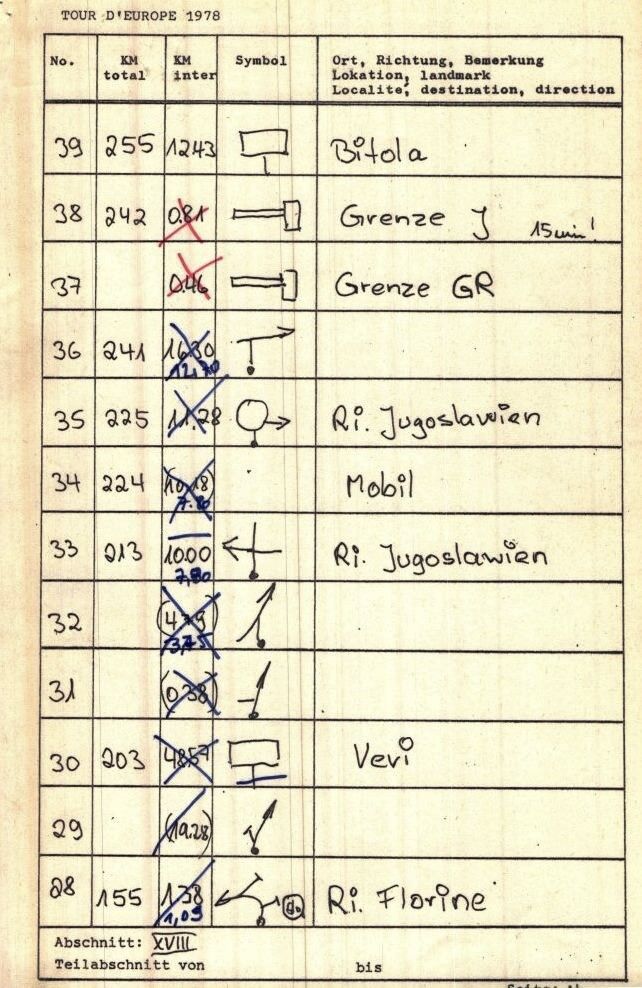 TOUR D'EUROPE 1978
No. KM total KM inter Symbol Ort, Richtung, Bemerkung
Lokation, landmark
Localite, destination, direction
39 255 1243 Bitola
38 242 0.81 Grenze J 15min!
37 0.46 Grenze GR
36 241 16.30
12,70
35 225 11.28 Ri. Jugoslawien
34 224 (10.18) Mobil
7.80
33 213 10.00 Ri. Jugoslawien
7,80
32
3,45
31 (0.38)
30 203 48.57 Vevi
29 (19.28)
28 155 1.38 Ri. Florine
1,09
Abschnitt: XVIII
Teilabschnitt von bis